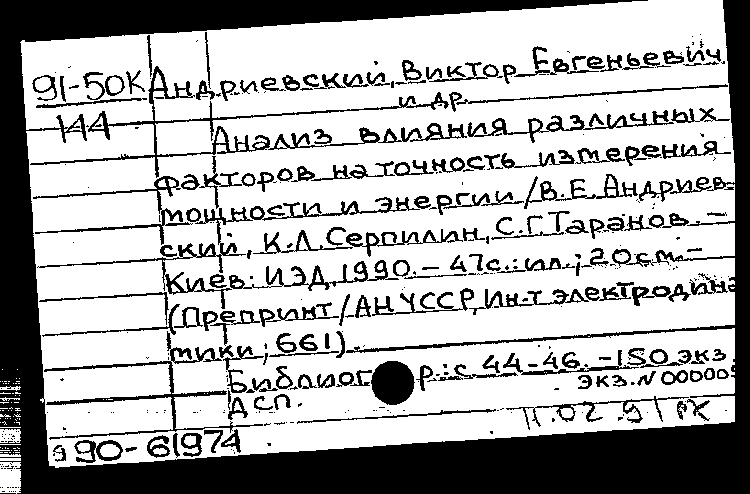 91-50К Андриевский, Виктор Евгеньевич
и др.
144
Анализ влияния различных
факторов на точность измерения
мощности и энергии / В.Е. Андриев-
ский, К.Л. Серпилин, С.Г. Таранов. –
Киев: ИЭД, 1990. – 47с.: ил.; 20см. –
(Препринт / АН УССР, Ин-т электродина
мики; 661).
Библиогр.: с. 44-46. – 150 экз.
экз. N 00000
ДСП.
11.02.91
90-61974